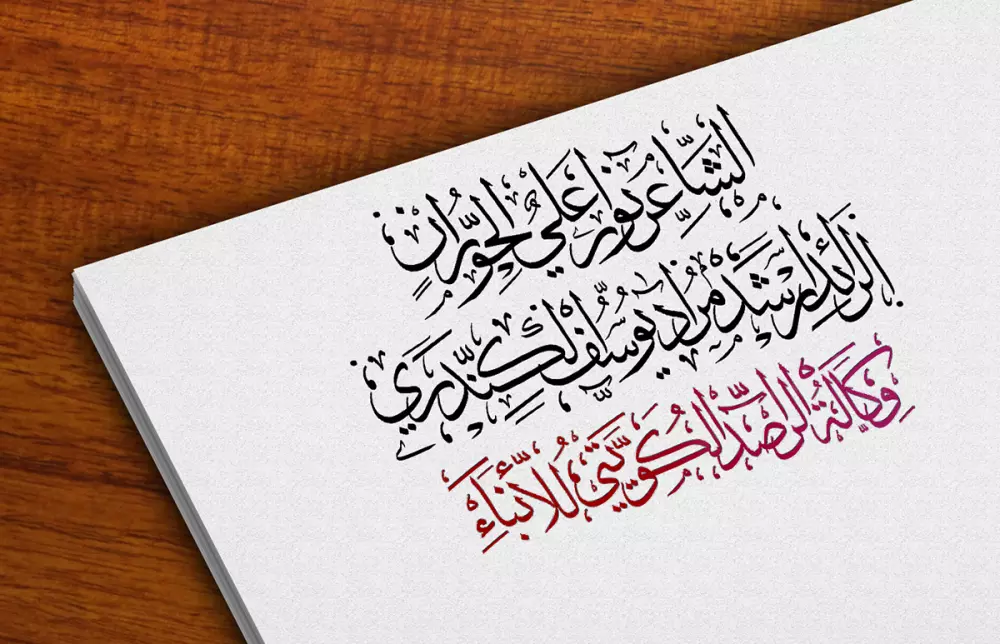 الشاعر علي الحوران
الرائد ارشد مراد يوسف الكندري
وكالة الرصد الكويتي للأنباء